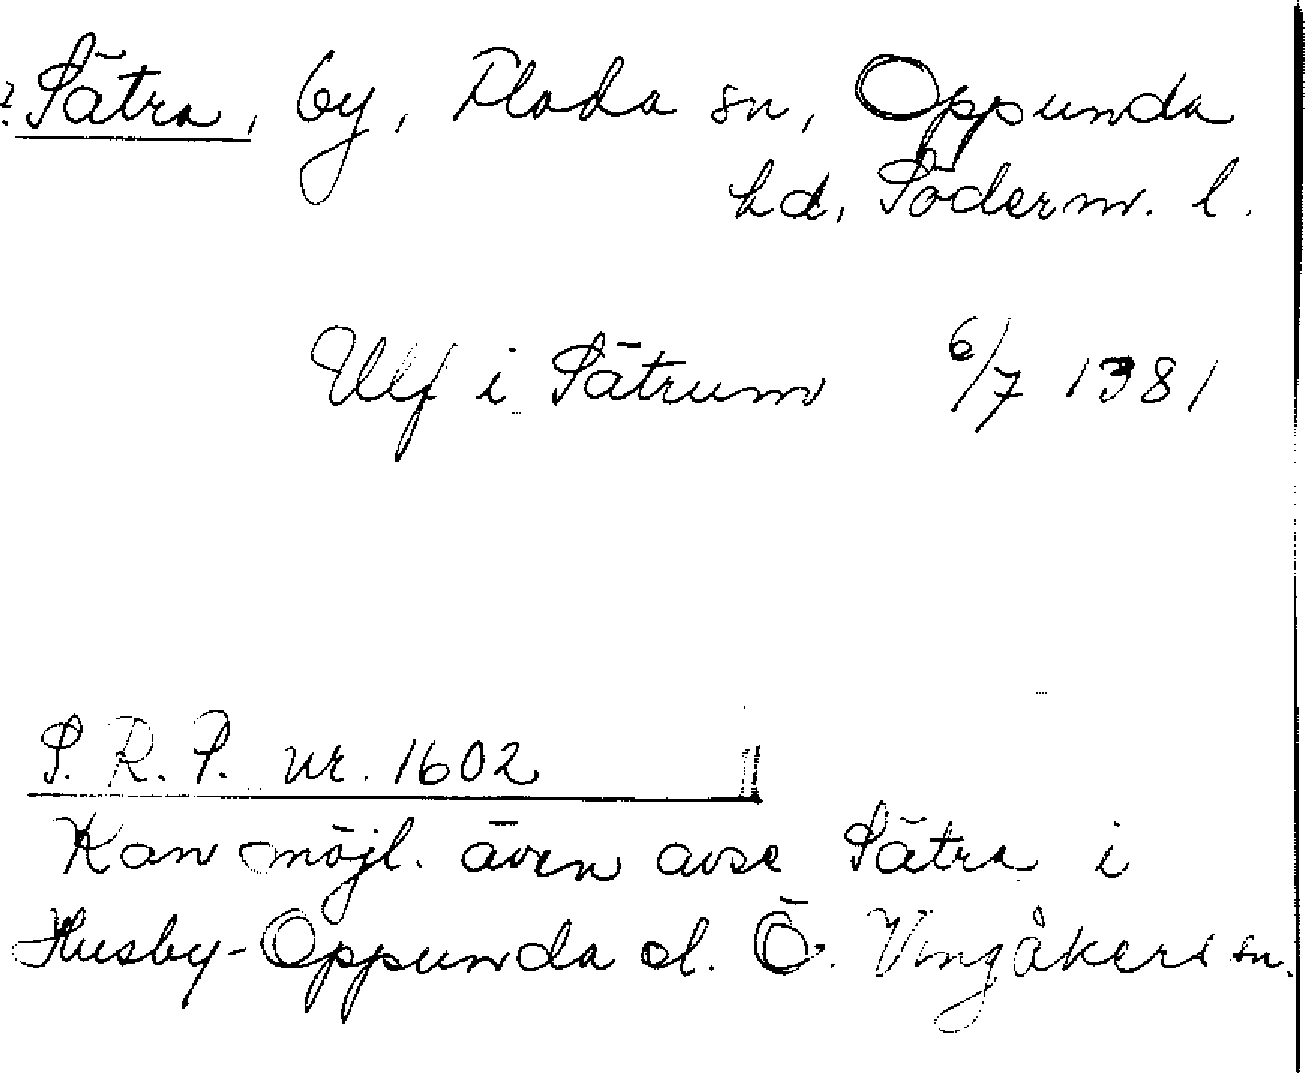 ? Sätra, by, Floda sn, Oppunda
hd, Söderm. l.
Ulf i Sätrum 6/7 1381
S. R. P. nr. 1602
Kan möjl. även avse Sätra i
Husby-Oppunda el. Ö. Vingåkers sn.